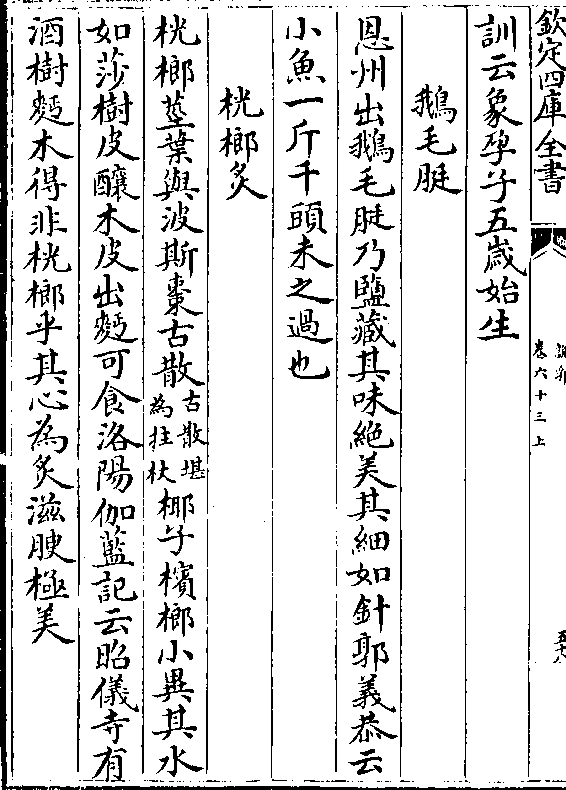 欽定四庫全書
卷六十三上
訓云象孕子五歲始生
鵝毛脡
恩州出鵝毛脡乃鹽藏其味絶美其細如針郭義恭云
小魚一斤千頭未之過也
桄榔炙
桄榔莖葉與波斯棗古散古散堪為拄杖椰子檳榔小異其水
如莎樹皮釀木皮出麪可食洛陽伽藍記云昭儀寺有
酒樹麪木得非桄榔乎其心為炙滋腴極美